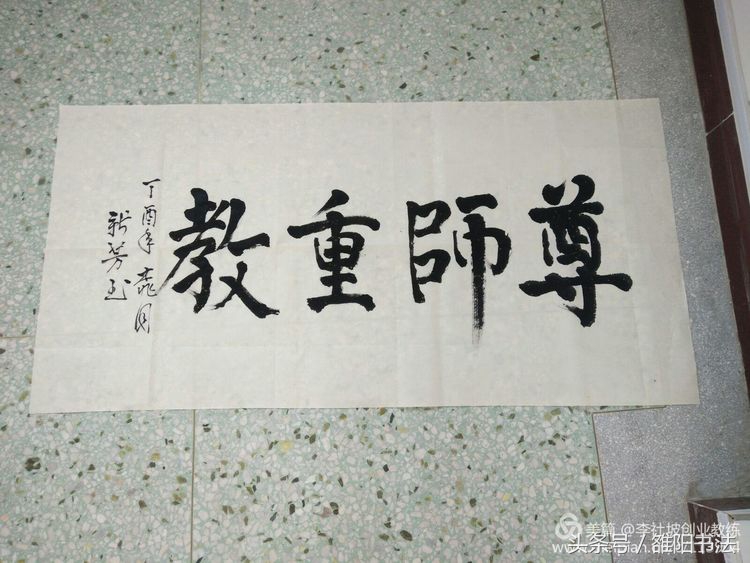 尊師重教
丁酉年月
新芳
美篇 @李社坡创业教练
头条号 / 阳书法